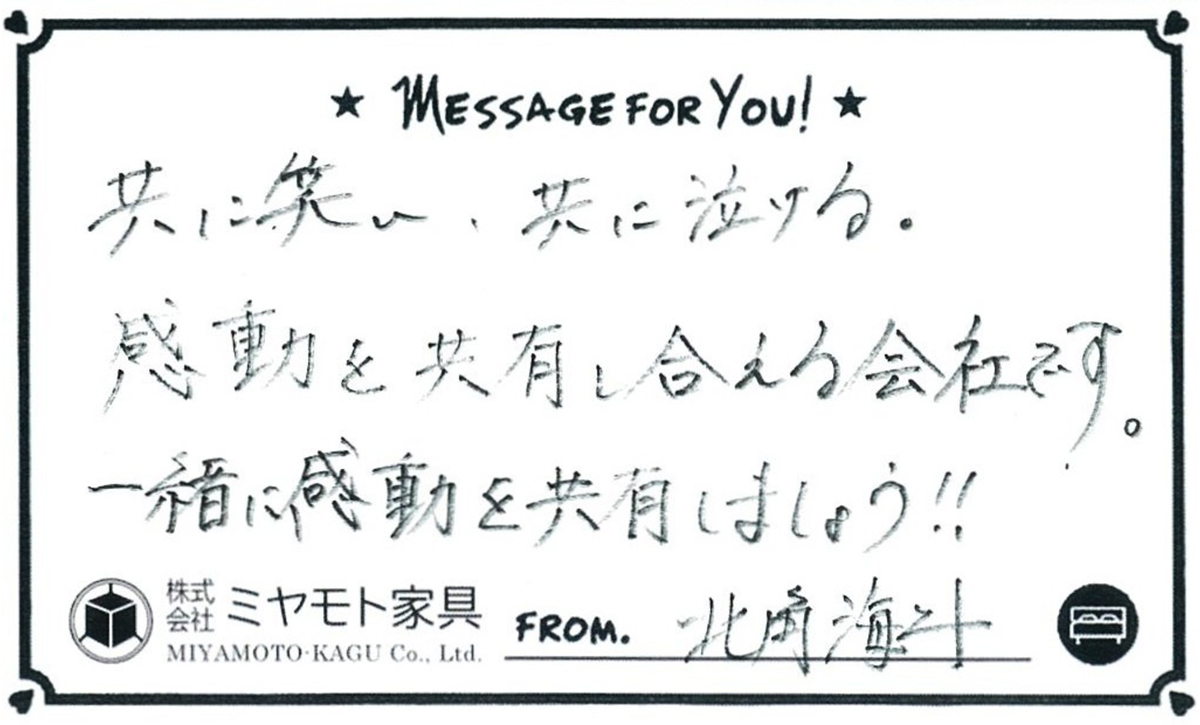 ★ MESSAGE FOR YOU! ★
共に笑い、共に泣ける。
感動を共有し合える会社です。
一緒に感動を共有しましょう!!
株式会社 ミヤモト家具
MIYAMOTO·KAGU Co., Ltd.
FROM. 北角海斗